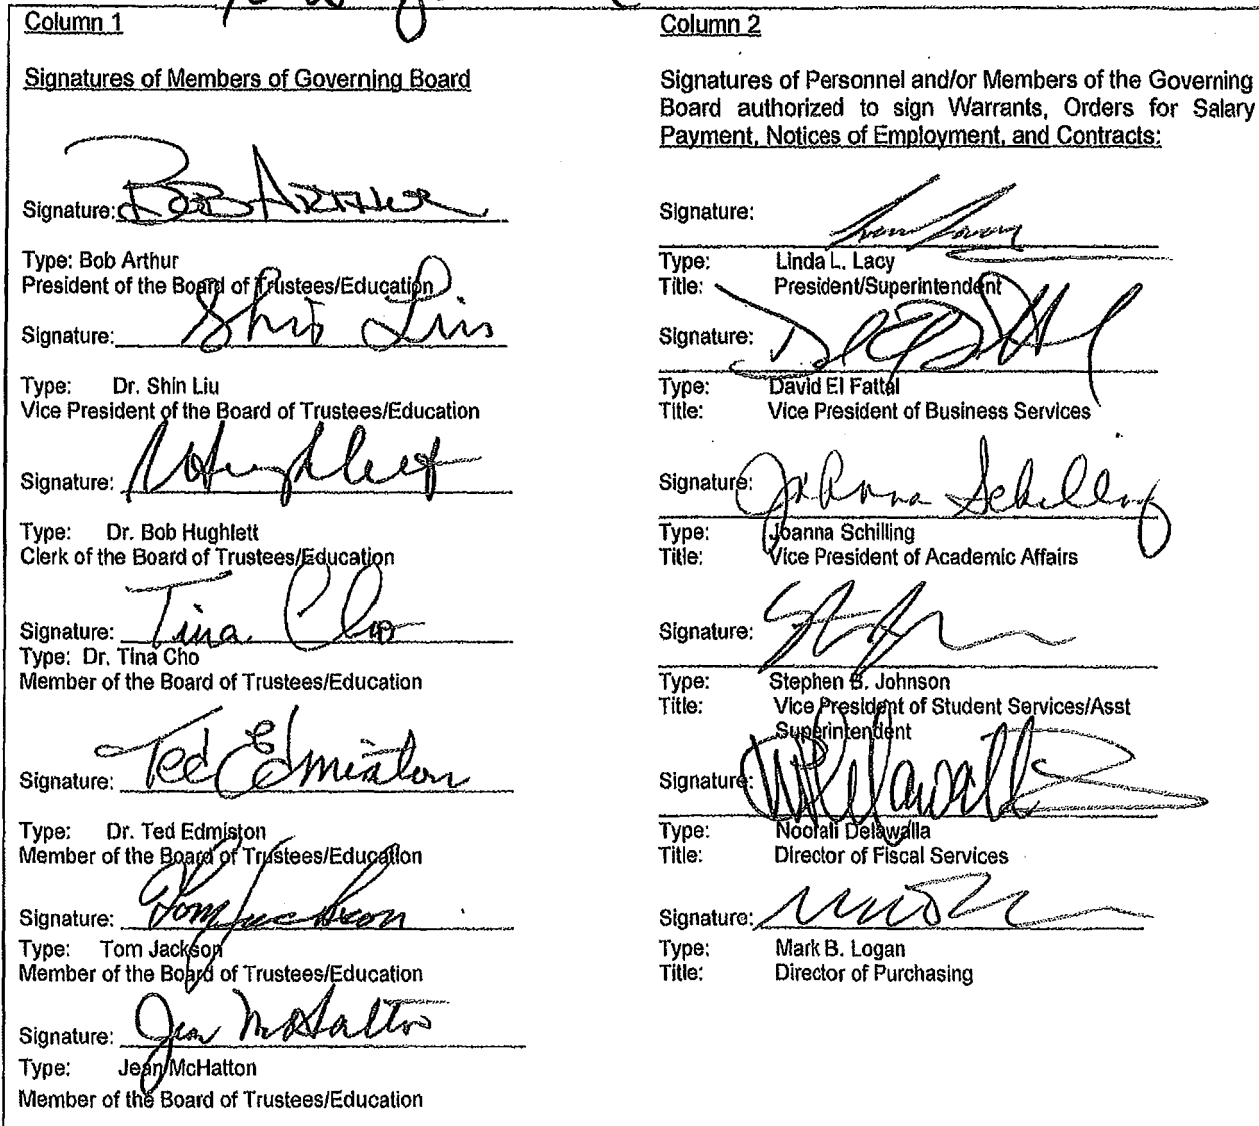 Column 1
Signatures of Members of Governing Board
Signature: Bob Arthur
Type: Bob Arthur
President of the Board of Trustees/Education
Signature: Shin Liu
Type: Dr. Shin Liu
Vice President of the Board of Trustees/Education
Signature:
Type: Dr. Bob Hughlett
Clerk of the Board of Trustees/Education
Signature: Tina Cho
Type: Dr. Tina Cho
Member of the Board of Trustees/Education
Signature: Ted Edmiston
Type: Dr. Ted Edmiston
Member of the Board of Trustees/Education
Signature: Tom Jackson
Type: Tom Jackson
Member of the Board of Trustees/Education
Signature: Jean McHatton
Type: Jean McHatton
Member of the Board of Trustees/Education
Column 2
Signatures of Personnel and/or Members of the Governing
Board authorized to sign Warrants, Orders for Salary
Payment, Notices of Employment, and Contracts:
Signature:
Type: Linda L. Lacy
Title: President/Superintendent
Signature:
Type: David El Fattal
Title: Vice President of Business Services
Signature: JoAnna Schilling
Type: Joanna Schilling
Title: Vice President of Academic Affairs
Signature:
Type: Stephen B. Johnson
Title: Vice President of Student Services/Asst
Superintendent
Signature:
Type: Noorali Delawalla
Title: Director of Fiscal Services
Signature:
Type: Mark B. Logan
Title: Director of Purchasing